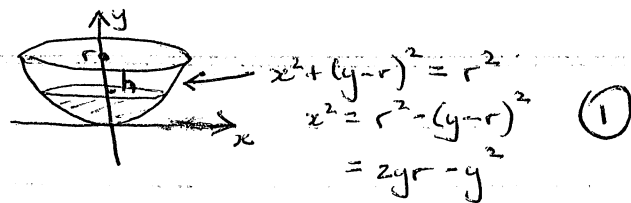 y
r
h
x
x² + (y-r)² = r²
x² = r² - (y-r)²
= 2yr - y²
1